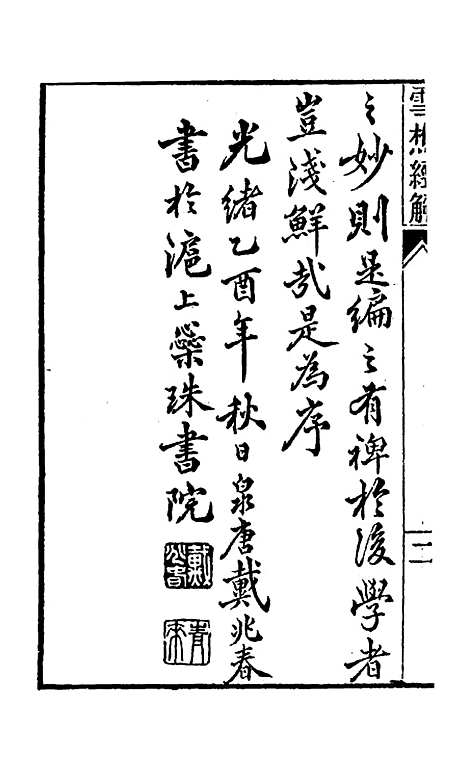 雲樵經解
二
之妙則是編之有裨於後學者
豈淺鮮哉是為序
光緒乙酉年秋日泉唐戴兆春
書於滬上蘂珠書院